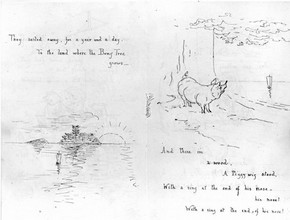 They sailed away, for a year and a day,
To the land where the Bong Tree
grows _
And there in
a wood,
A Piggy wig stood,
With a ring at the end of his nose,
his nose!
With a ring at the end, of his nose!